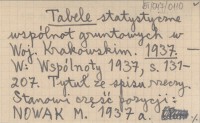 Tabele statystyczne
wspólnot gruntowych w
Woj. Krakowskim. 1937.
W: Wspólnoty 1937, s. 131-
207. Tytuł ze spisu rzeczy.
Stanowi część pozycji:
NOWAK M. 1937 a.